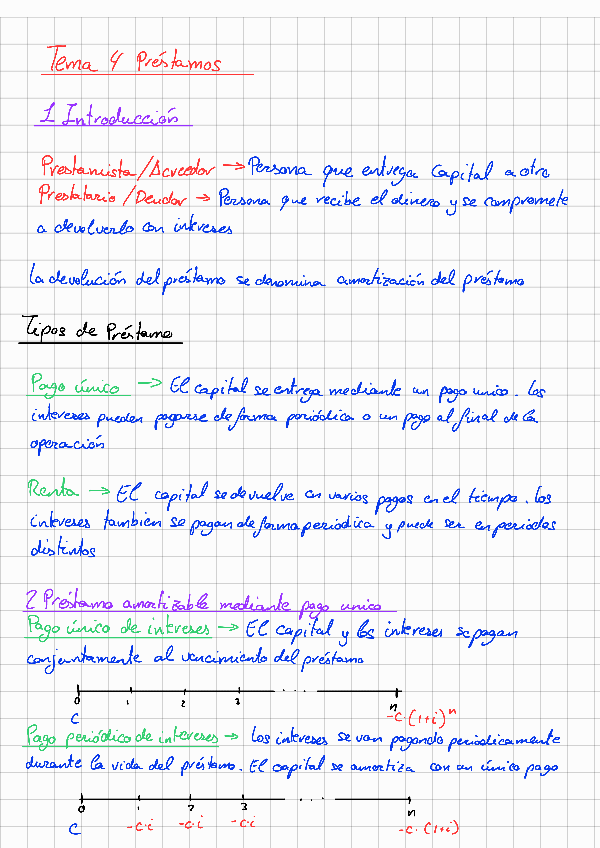 Tema 4 Préstamos
1 Introducción
Prestamista/Acreedor → Persona que entrega Capital a otro
Prestatario/Deudor → Persona que recibe el dinero y se compromete
a devolverlo con intereses
La devolución del préstamo se denomina amortización del préstamo
Tipos de Préstamo
Pago único → El capital se entrega mediante un pago unico. Los
intereses pueden pagarse de forma periódica o un pago al final de la
operación
Renta → El capital se devuelve en varios pagos en el tiempo. Los
intereses tambien se pagan de forma periódica y puede ser en periodos
distintos
2 Préstamo amortizable mediante pago unico
Pago único de intereses → El capital y los intereses se pagan
conjuntamente al vencimiento del préstamo
0 1 2 3 . . . n
C -C·(1+i)^n
Pago periódico de intereses → Los intereses se van pagando periodicamente
durante la vida del préstamo. El capital se amortiza con un único pago
0 1 2 3 . . . n
C -C·i -C·i -C·i -C·(1+i)